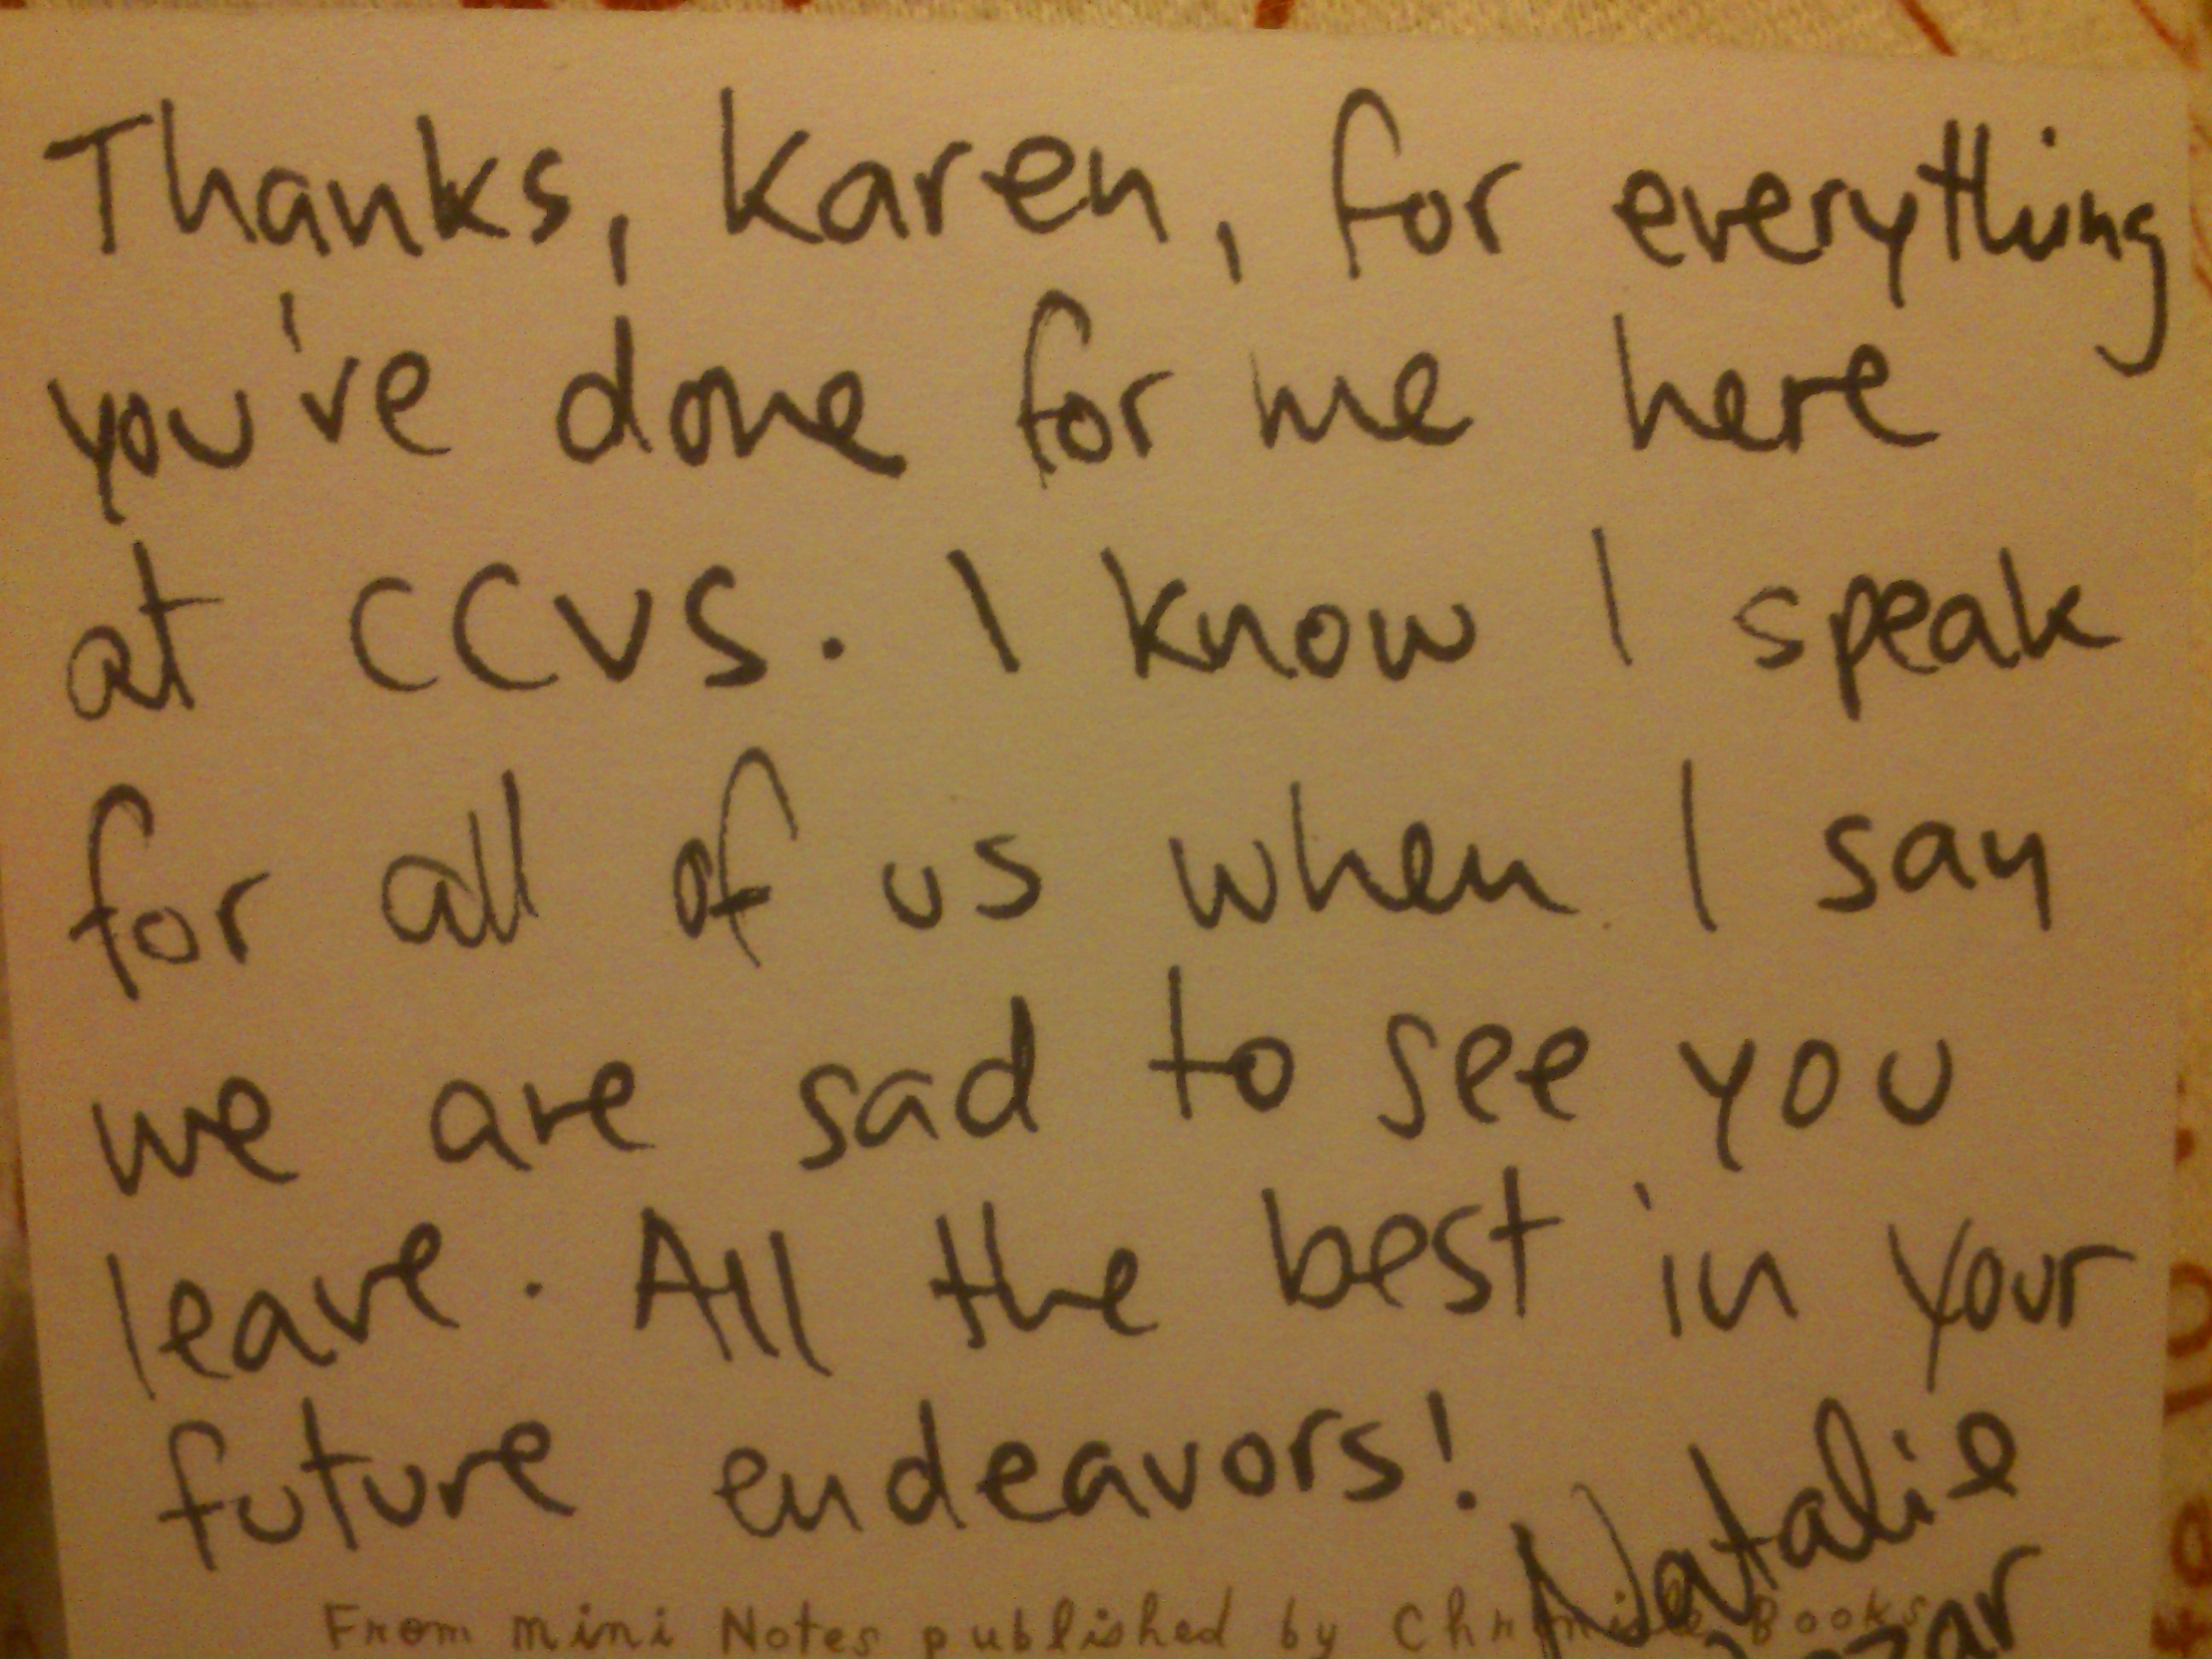 Thanks, Karen, for everything
you've done for me here
at CCVS. I know I speak
for all of us when I say
we are sad to see you
leave. All the best in your
future endeavors!
Natalie
From mini Notes published by Chronicle Books